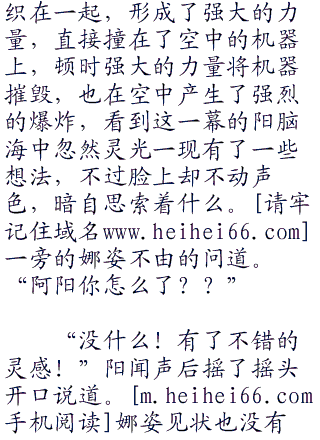 织在一起，形成了强大的力
量，直接撞在了空中的机器
上，顿时强大的力量将机器
摧毁，也在空中产生了强烈
的爆炸，看到这一幕的阳脑
海中忽然灵光一现有了一些
想法，不过脸上却不动声
色，暗自思索着什么。[请牢
记住域名www.heihei66.com]
一旁的娜姿不由的问道。
“阿阳你怎么了？？”
“没什么！有了不错的
灵感！”阳闻声后摇了摇头
开口说道。[m.heihei66.com
手机阅读]娜姿见状也没有